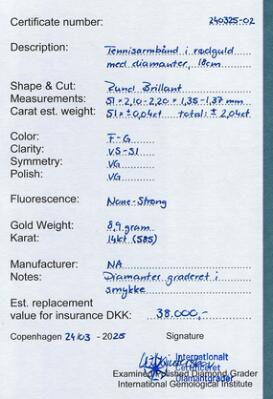 Certificate number: 240325-02
Description: Tennisarmbånd i rødguld
med diamanter, 18cm
Shape & Cut: Rund Brillant
Measurements: 51 × 2,10-2,20 × 1,35-1,37 mm
Carat est. weight: 51 × ± 0,04ct total: ± 2,04ct
Color: F-G
Clarity: VS-SI
Symmetry: VG
Polish: VG
Fluorescence: None-Strong
Gold Weight: 8,9 gram
Karat: 14kt (585)
Manufacturer: NA
Notes: Diamanter graderet i
smykke
Est. replacement
value for insurance DKK: 38.000,-
Copenhagen 24/03 - 2025 Signature
Internationalt
Certificeret
Diamantgrader
Examined Polished Diamond Grader
International Gemological Institute